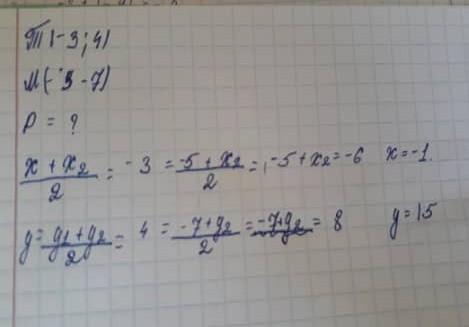 T(-3; 4)
M(-5 -7)
P = ?
x + x₂ / 2 = -3 = -5 + x₂ / 2 = , -5 + x₂ = -6 x = -1.
y = y₁ + y₂ / 2 = 4 = -7 + y₂ / 2 = -7 + y₂ = 8 y = 15